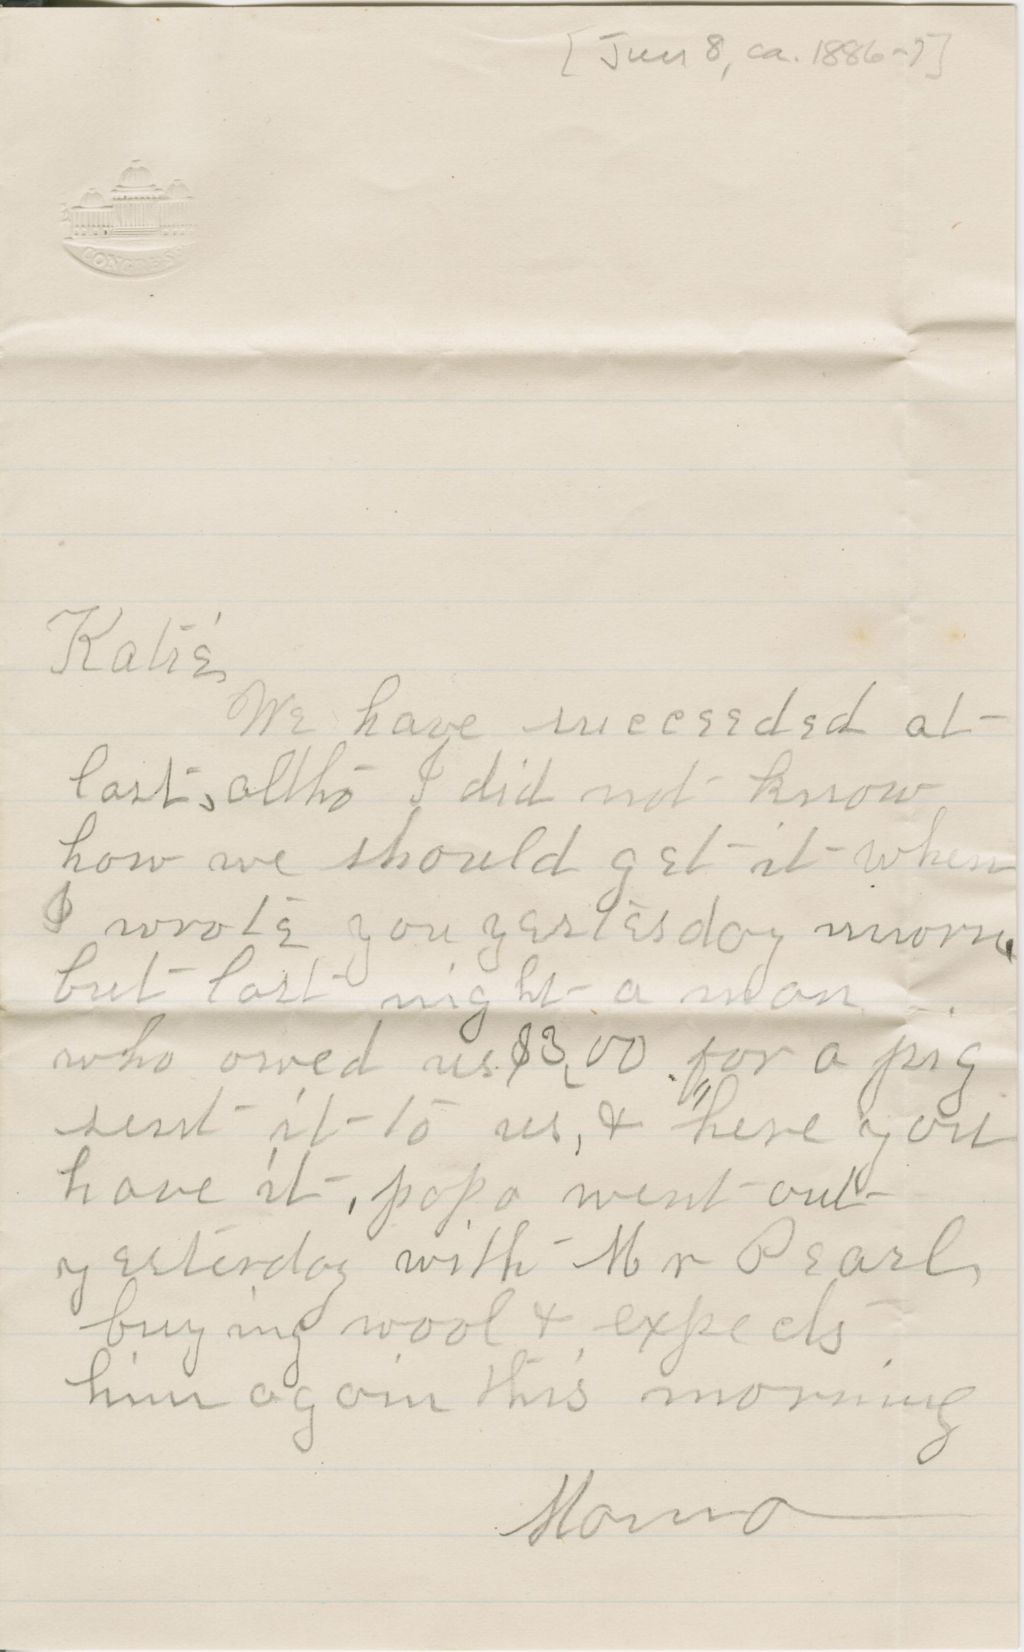 [Jun 8, ca. 1886-7]
CONGRESS
Katie,
We have succeeded at
last, altho I did not know
how we should get it when
I wrote you yesterday morn,
but last night a man
who owed us $3,00 for a pig
sent it to us, & "here you
have it, papa went out
yesterday with Mr Pearl,
buying wool & expects
him again this morning
Mama